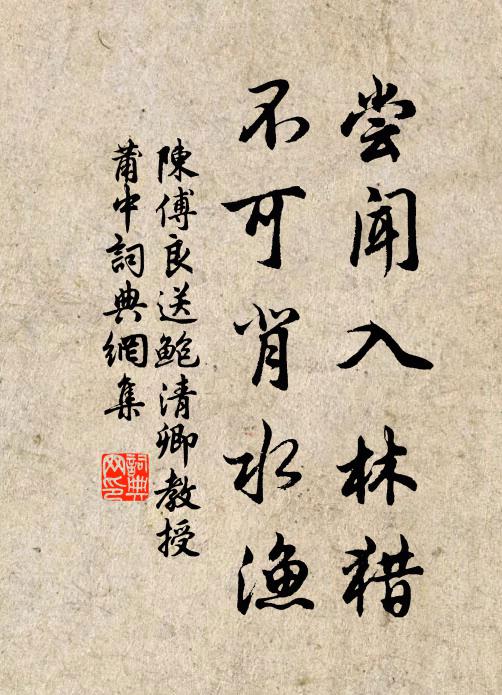 尝闻入林猎
不可背水渔
陳傅良送鮑清卿教授
莆中詞典網集
詞典
网印